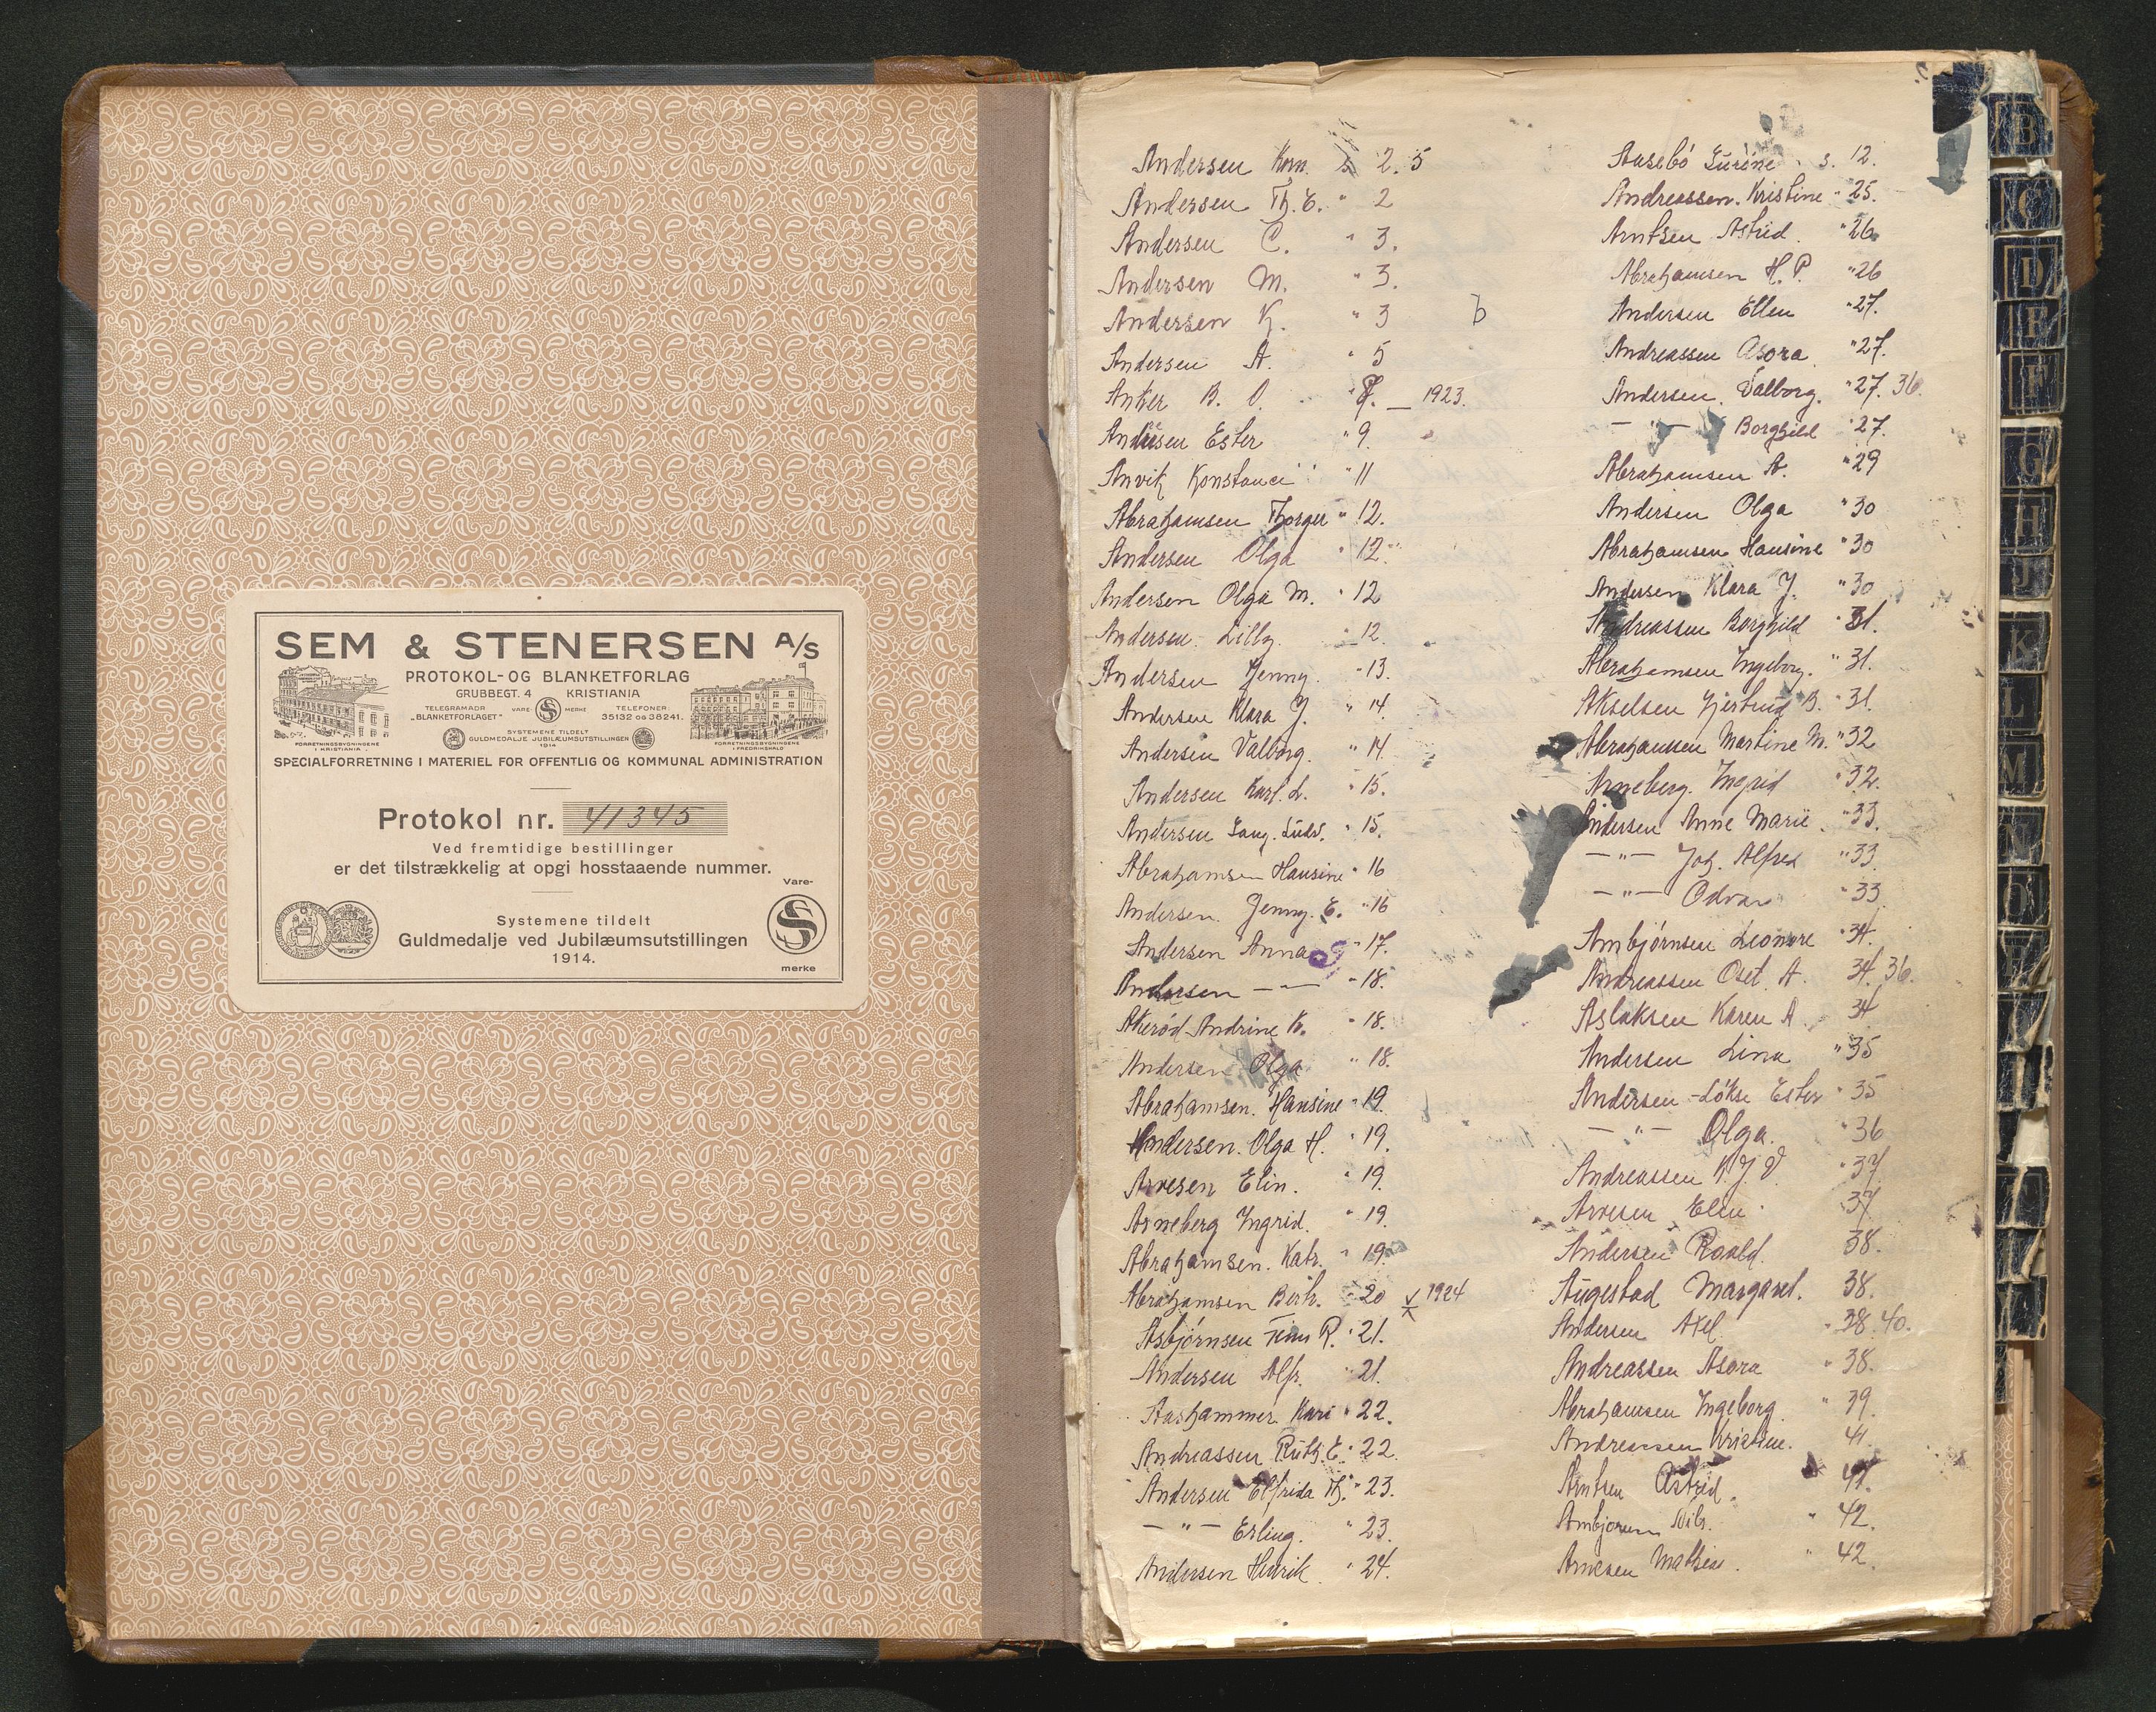 SEM & STENERSEN A/S
PROTOKOL- OG BLANKETFORLAG
GRUBBEGT. 4 KRISTIANIA
TELEGRAMADR
„BLANKETFORLAGET"
VARE- S MERKE
TELEFONER:
35132 og 38241.
SYSTEMENE TILDELT
GULDMEDALJE JUBILÆUMSUTSTILLINGEN
1914
FORRETNINGSBYGNINGENE
I KRISTIANIA
FORRETNINGSBYGNINGENE
I FREDRIKSHALD
SPECIALFORRETNING I MATERIEL FOR OFFENTLIG OG KOMMUNAL ADMINISTRATION
Protokol nr. 41345
Ved fremtidige bestillinger
er det tilstrækkelig at opgi hosstaaende nummer.
Systemene tildelt
Guldmedalje ved Jubilæumsutstillingen
1914.
Vare-
S
merke
Andersen Korn. s 2. 5
Andersen Th. E. " 2
Andersen C. " 3.
Andersen M. " 3.
Andersen K. " 3 b
Andersen A. " 5
Anker B. O. " — 1923.
Andersen Ester " 9
Anvik Konstance " 11
Abrahamsen Thorger " 12.
Andersen Olga " 12.
Andersen Olga M. " 12
Andersen Lilly. " 12.
Andersen Jenny. " 13.
Andersen Klara J. " 14.
Andersen Valborg. " 14.
Andersen Karl. L. " 15.
Andersen Laug. Ludv. " 15.
Abrahamsen Hansine " 16
Andersen. Jenny. E. " 16
Andersen Anna " 17.
Andersen — " — " 18.
Akerød Andrine K. " 18.
Andersen Olga " 18.
Abrahamsen. Hansine " 19.
Andersen. Olga H. " 19.
Arvesen Elin. " 19.
Arneberg Ingrid. " 19.
Abrahamsen. Katr. " 19.
Abrahamsen Berh. " 20 1924
Asbjørnsen R. " 21.
Andersen Alfr. " 21.
Aashammer Kari " 22.
Andreassen Ruth. E. " 22.
Andersen Elfrida Th. " 23.
— " — Erling. " 23.
Andersen Henrik. " 24.
Aasebö Surine s. 12.
Andreassen. Kristine " 25.
Arntsen Astrid. " 26.
Abrahamsen H. P. " 26
Andersen Ellen " 27.
Andreassen Asora. " 27.
Andersen. Valborg. " 27. 36.
— " — Borghild " 27.
Abrahamsen A. " 29
Andersen Olga " 30
Abrahamsen Hansine " 30
Andersen Klara J. " 30
Andreassen Borghild " 31.
Abrahamsen Ingeborg. " 31.
Akselsen Gjertrud B. " 31.
Abrahamsen Martine M. " 32
Arneberg. Ingrid " 32.
Andersen Anne Marie. " 33.
— " — Joh. Alfred " 33
— " — Odvar " 33
Ambjørnsen Leonore " 34.
Andreassen Oset. A. 34. 36.
Aslaksen Karen A. 34
Andersen Lina " 35
Andersen-Lökse Ester " 35
— " — Olga. " 36
Andreassen K. J. V. " 37
Arvesen Elin 37
Andersen Roald. 38.
Augestad Margaret. 38.
Andersen Axel. " 38. 40.
Andreassen Asora " 38.
Abrahamsen Ingeborg. " 39.
Andreassen Kristine. 41.
Arntsen Astrid. 41.
Nils. " 42.
Arnesen Mathen. " 42.
B
C
D
E
F
G
H
J
K
L
M
N
O